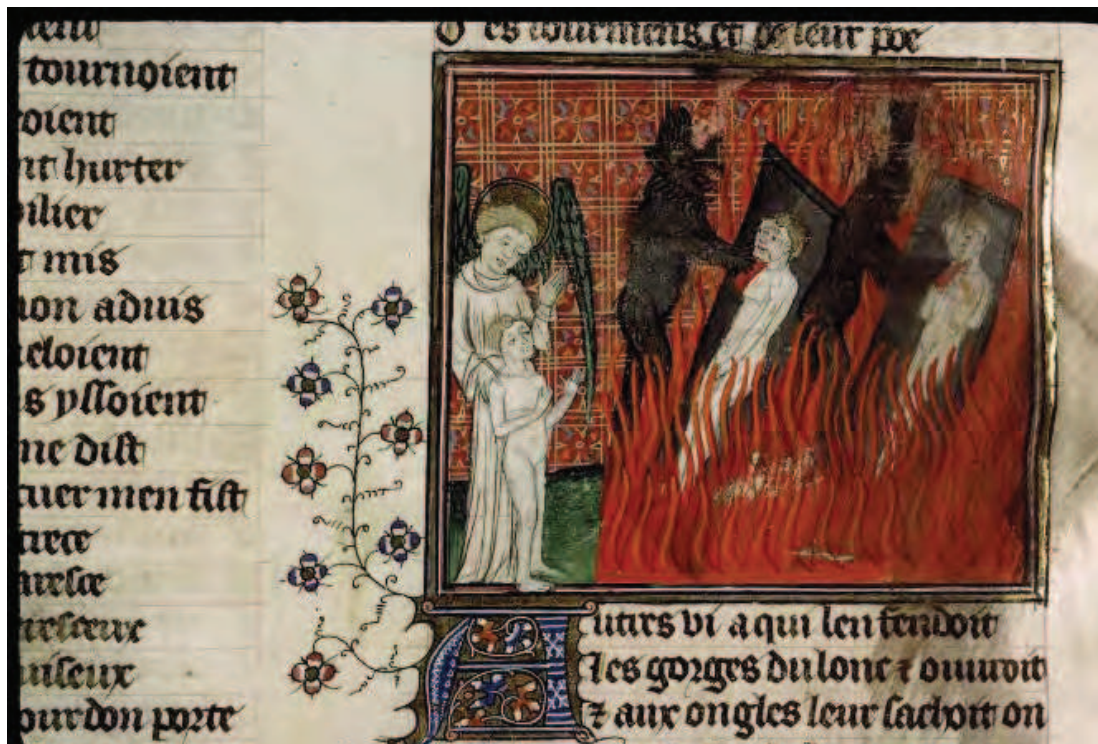 tournoient
oient
nt hurter
pilier
t mis
mon aduis
eloient
s yssoient
me dist
tuer men fist
our don porte
es tourmens et de leur poe
Autirs vi a qui len fendoit
les gorges du lonc ⁊ ouuroit
⁊ aux ongles leur sachoit on